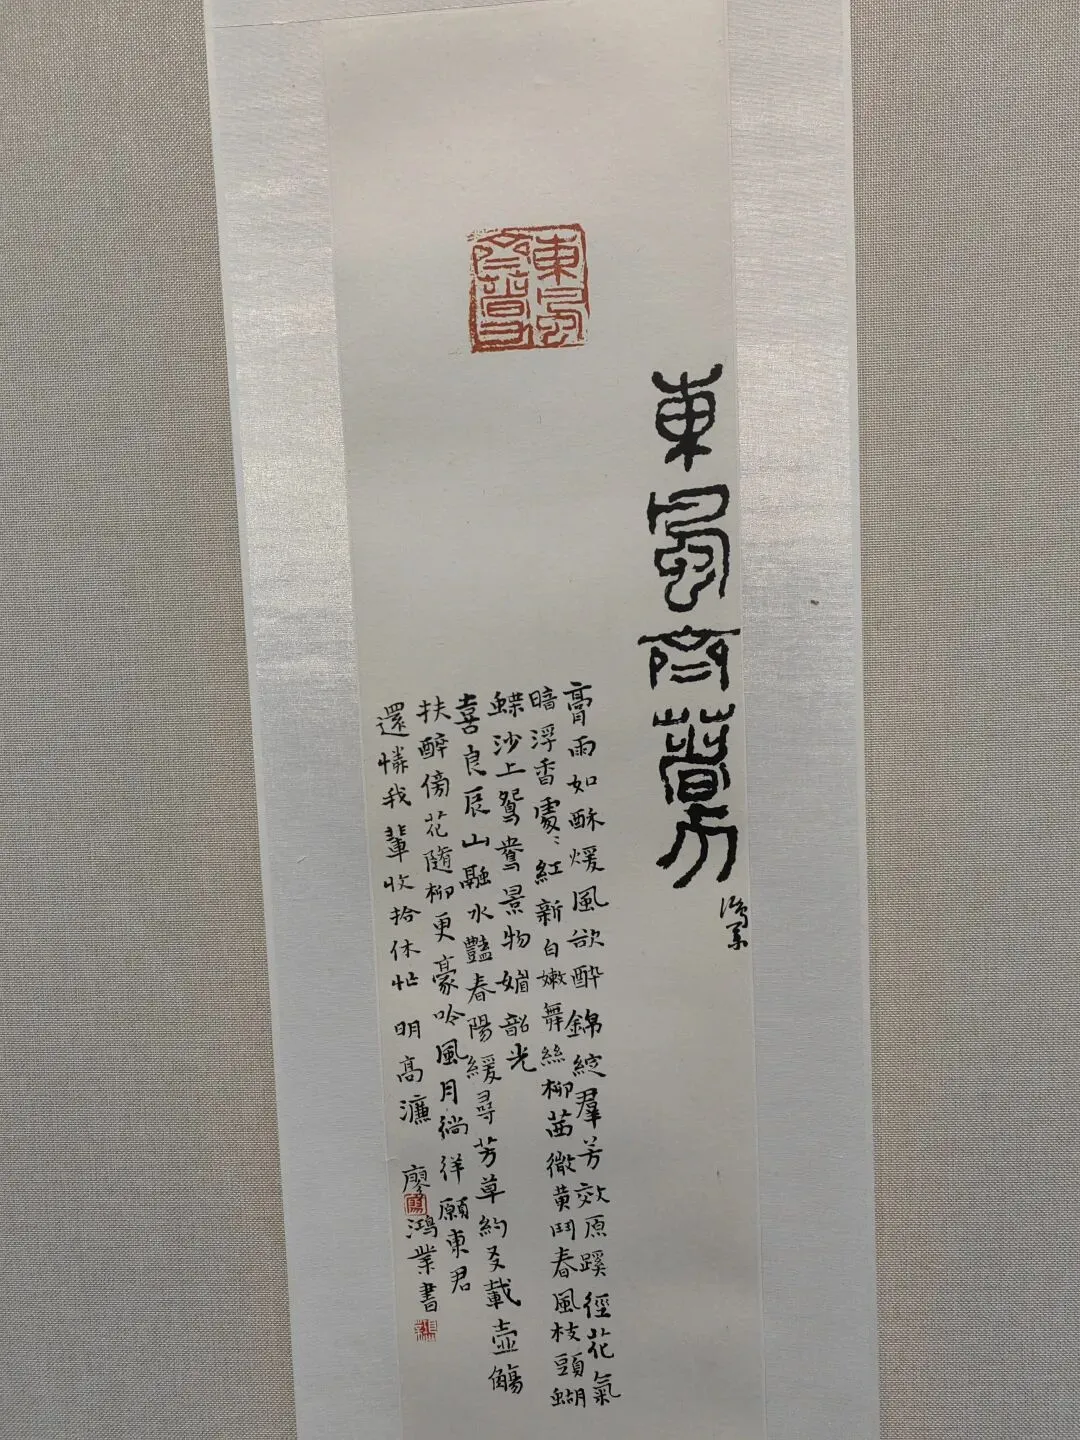 東風
齊著力
東風齊著力
鴻業
膏雨如酥煖風欲醉錦綻羣芳效原蹊徑花氣
暗浮香處〻紅新白嫩舞絲柳茜微黄鬥春風枝頭蝴
蝶沙上鴛鴦景物媚韶光
喜良辰山融水豔春陽緩尋芳草約友載壺觴
扶醉傍花隨柳更豪吟風月徜徉願東君
還憐我輩收拾休忙 明高濂 廖鴻業書